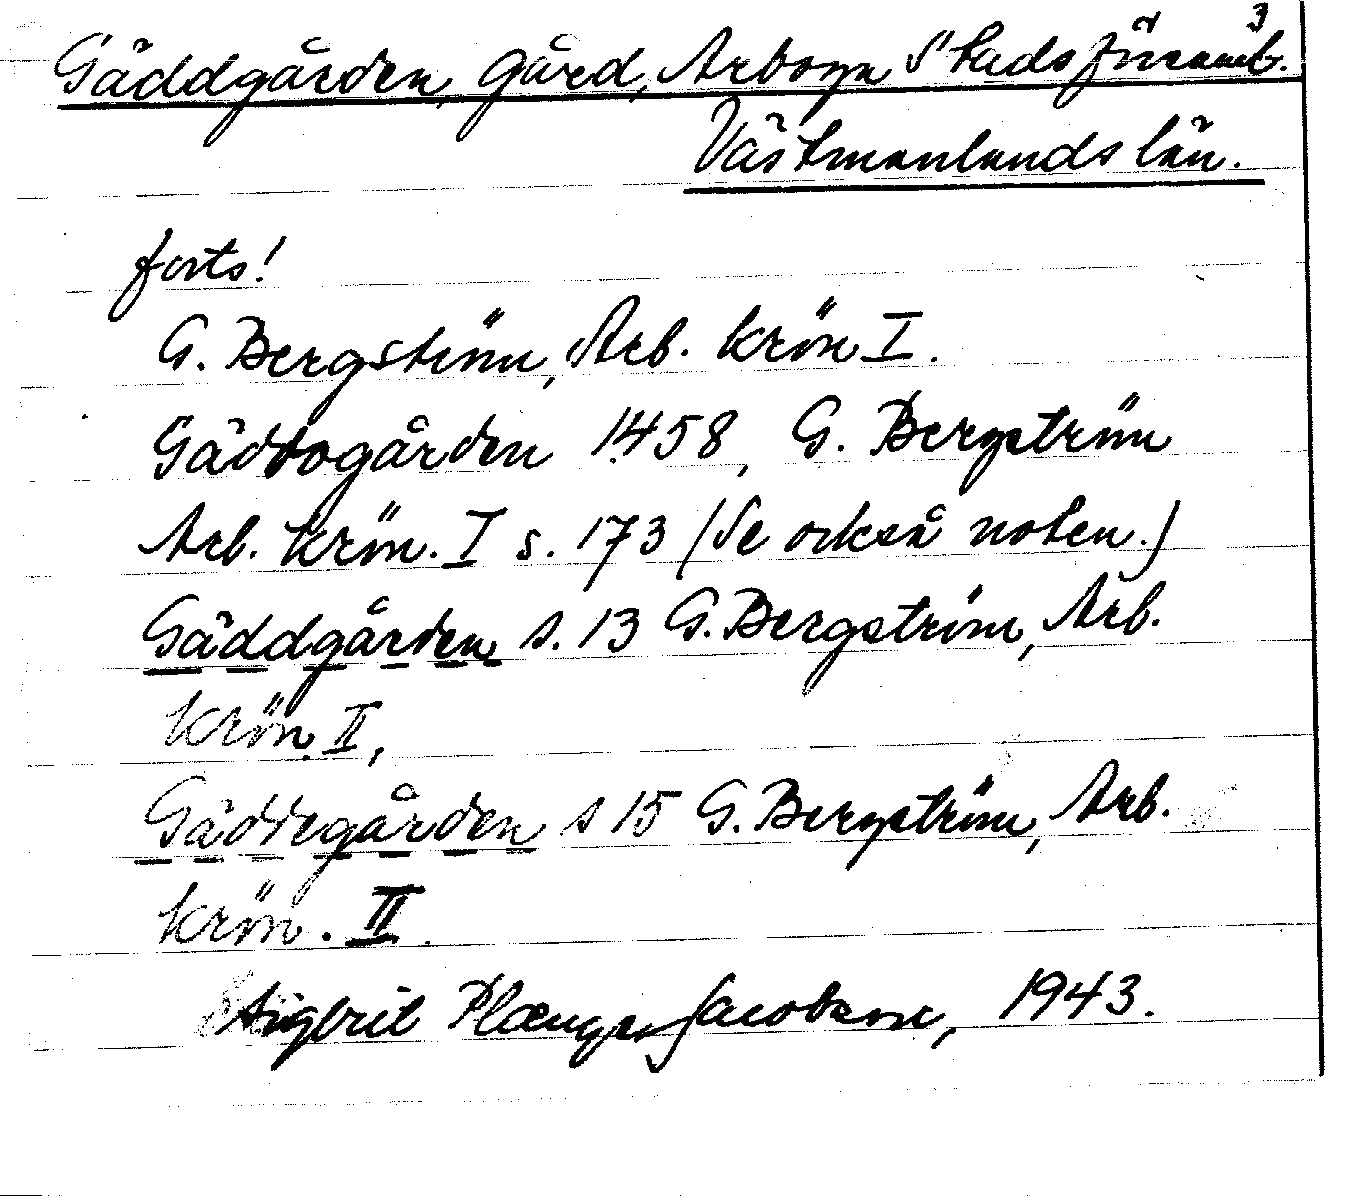 3
Gäddgården, gård, Arboga Stadsförsaml.
Västmanlands län.
forts!
G. Bergström, Arb. krön I.
Gäddogården 1458, G. Bergström
Arb. krön. I s. 173 (Se också noten.)
Gäddgården s. 13 G. Bergström, Arb.
krön. II,
Gäddegården s 15 G. Bergström, Arb.
krön. II
Sigbrit Plænge Jacobson, 1943.